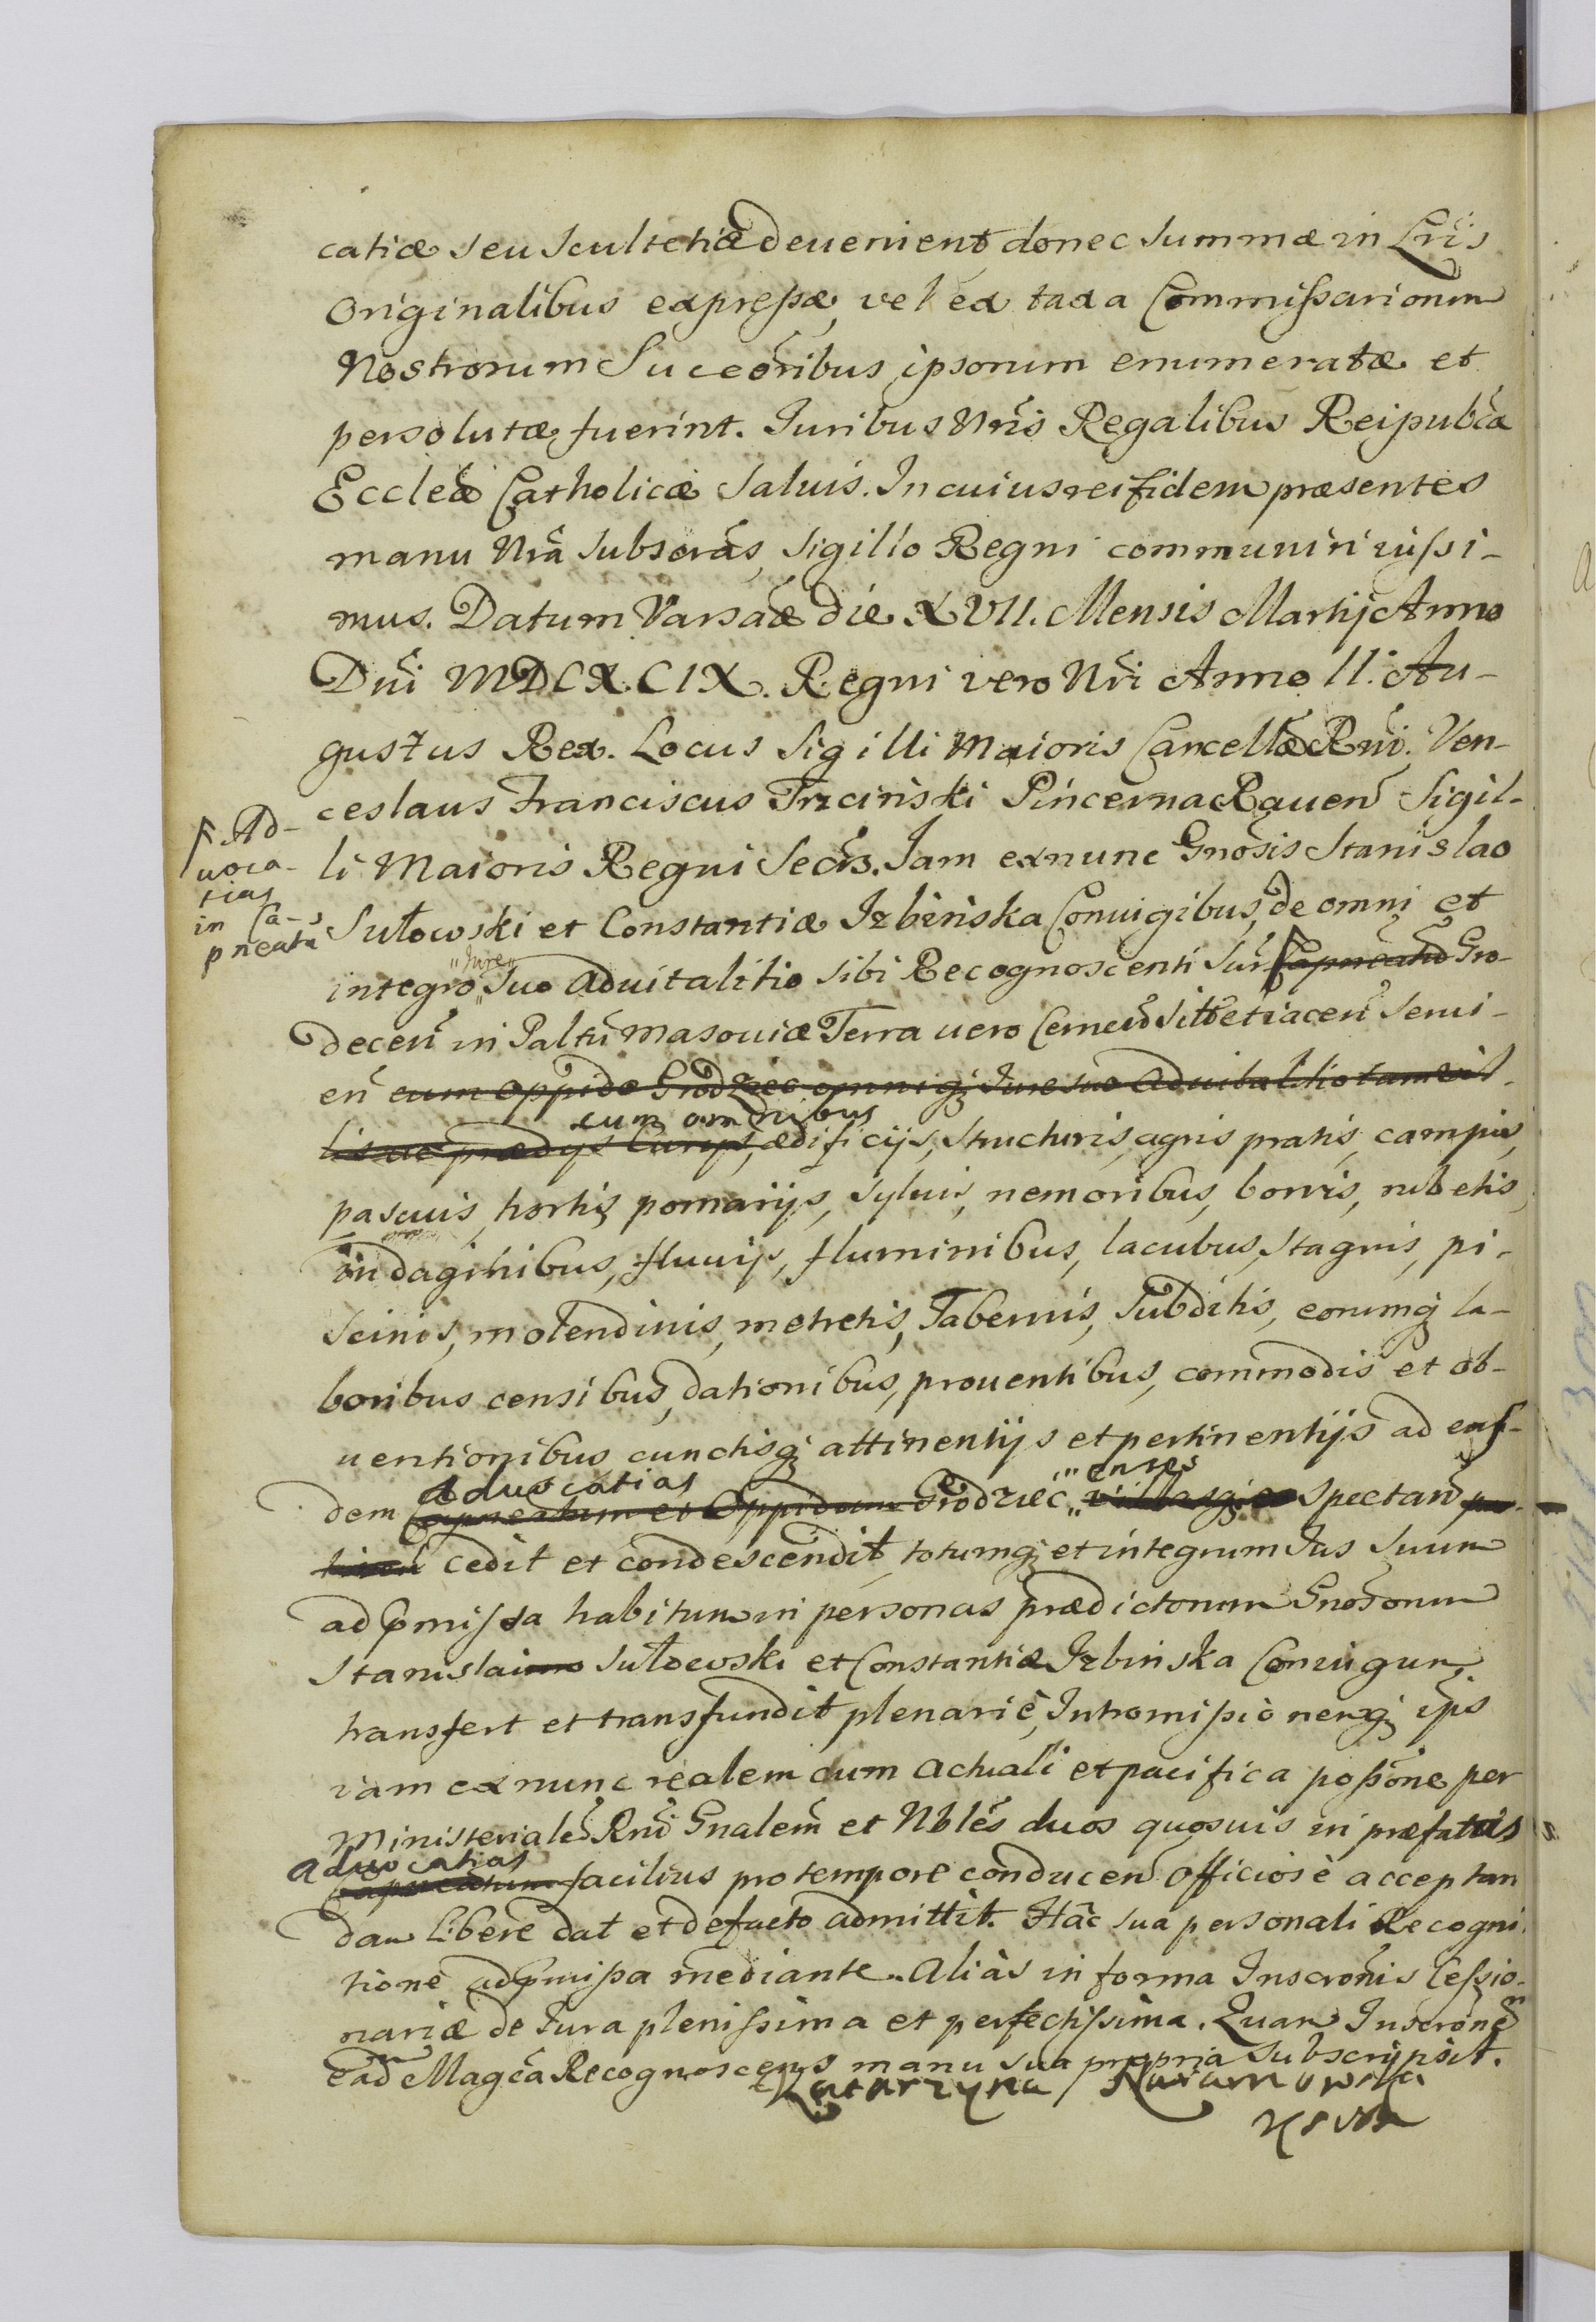 catiæ seu Scultetiæ deuenient, donec Summæ in Lris
Originalibus expressæ, vel ex taxa Commissariorum
Nostrorum Succeoribus ipsorum enumeratæ et
persolutæ fuerint. Juribus Nris Regalibus Reipubca
Eccleæ Catholicæ Saluis. In cuius rei fidem præsentes
manu Nra Subscras, Sigillo Regni communiri iussi-
mus. Datum Varsaæ die XVII. Mensis Martij Anno
Dni MDCXCIX. Regni vero Nri Anno II. Au-
gustus Rex. Locus Sigilli Maioris Cancellæ Rni. Ven-
ceslaus Franciscus Trzciński Pincerna Rauen Sigil-
li Maioris Regni Secrs. Jam ex nunc Gnosis Stanislao
Sułowski et Constantiæ Izbińska Coniugibus, de omni et
Ad-
uoca-
tias
in Ca-
pneatu
integro "Jure" Suo aduitalitio sibi Recognoscenti Sur Capneatu Gro-
decen in Paltu Masouiæ Terra uero Cernen Sit et iacen Serui-
en cum oppido Grodziec omnigʒ Jure suo aduitalitio tam vil-
lis ac prædijs Curijs, cum omnibus ædificijs, structuris, agris pratis, campis,
pascuis, hortis pomarijs, syluis, nemoribus, borris, rubetis,
indaginibus, fluuijs, fluminibus, lacubus, stagnis, pi-
scinis, molendinis, metretis, Tabernis, Subditis, eorumgʒ la-
boribus censibus, dationibus, prouentibus, commodis et ob-
uentionibus cunctisgʒ attinentijs et pertinentijs ad eas-
dem aduocatias Capneatum et Oppidum Grodziec "enses villasgʒ spectan
cedit et condescendit, totumgʒ et integrum Jus suum
ad pmissa habitum in personas prædictorum Gnosorum
Stanislai Sułowski et Constantiæ Izbińska Coniugum
transfert et transfundit plenariè, Intromissionemgʒ ips
iam ex nunc realem cum actuali et pacifica possone per
Ministerialem Rni Gnalem et Nbles duos quosuis in præfatas
aduocatias Capneatum facilius pro tempore conducen officiosè acceptan
dam libere dat et de facto admittit. Hac sua personali Recogni-
tione ad pmissa mediante. Aliàs in forma Inscronis Cessio-
nariæ de Jura plenissima et perfectissima. Quam Inscronem
ead Magca Recognoscens manu sua propria subscripsit.
Katarzyna